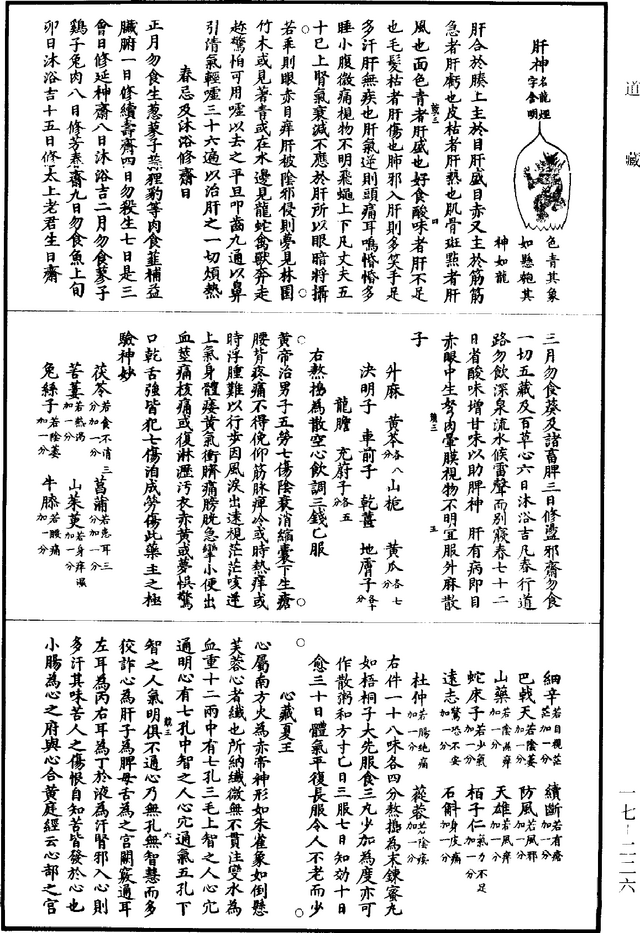 道藏
色青其象
如懸匏其
神如龍
肝神 名龍煙 字含明
肝合於腠上主於目肝盛目赤又主於筋筋
急者肝虧也皮枯者肝熱也肌骨斑點者肝
風也面色青者肝盛也好食酸味者肝不足
也毛髮枯者肝傷也肺邪入肝則多笑手足
多汗肝無疾也肝氣逆則頭痛耳鳴惛惛多
睡小腹微痛視物不明飛蠅上下凡丈夫五
十已上腎氣衰減不應於肝所以眼暗將攝
若乖則眼赤目痒肝被陰邪侵則夢見林園
竹木或見著青或在水邊見龍蛇禽獸奔走
趂驚怕可用噓以去之平旦叩齒九通以鼻
引清氣輕噓三十六過以治肝之一切煩熱
春忌及沐浴修齋日
正月勿食生葱蓼子蒸狸豹等肉食韮補益
臟腑一日修續壽齋四日勿殺生七日是三
會日修延神齋八日沐浴吉二月勿食蓼子
鷄子兔肉八日修芳蕪齋九日勿食魚上旬
卯日沐浴吉十五日修太上老君生日齋
三月勿食葵及諸畜脾三日修盪邪齋勿食
一切五藏及百草心六日沐浴吉凡春行道
路勿飲深泉流水候雷聲而別寢春七十二
日省酸味增甘味以助脾神 肝有病即目
赤眼中生努肉暈膜視物不明宜服升麻散
子
升麻 黄芩各八分 山梔 黄瓜各七分
決明子 車前子 乾薑 地膚子各十分
龍膽 充蔚子各五分
右熬擣為散空心飲調三錢匕服
黄帝治男子五勞七傷陰衰消縮囊下生瘡
腰背疼痛不得俛仰筋脉痺冷或時熱痒或
時浮腫難以行步因風淚出遠視茫茫咳逆
上氣身體痿黄氣衝臍痛膀胱急攣小便出
血莖痛核痛或復淋瀝污衣赤黄或夢惧驚
口乾舌強皆犯七傷洎成勞傷此藥主之極
驗神妙
茯苓若食不消三分加一分 菖蒲若患耳三分加一分
苦蔞若熱渴加一分 山茱萸若身痒濕加一分
兔絲子若陰萎加一分 牛膝若腰痛加一分
細辛若目視茫茫加一分 續斷若有瘡加一分
巴戟天若陰萎加一分 防風若風邪加一分
山藥若陰濕痒加一分 天雄若風痒加一分
蛇床子若少氣加一分 栢子仁氣力不足加一分
遠志驚恐不安加一分 石斛身皮痛加一分
杜仲若腸絕痛加一分 蓯蓉若陰痿加一分
右件一十八味各四分熬擣為末鍊蜜丸
如梧桐子大先服食三丸少加為度亦可
作散粥和方寸匕日三服七日知効十日
愈三十日體氣平復長服令人不老而少
心藏夏王
心屬南方火為赤帝神形如朱雀象如倒懸
芙蓉心者纖也所納纖微無不貫注變水為
血重十二兩中有七孔三毛上智之人心穴
通明心有七孔中智之人心穴通氣五孔下
智之人氣明俱不通心乃無孔無智慧而多
佼詐心為肝子為脾母舌為之宫闕竅通耳
左耳為丙右耳為丁於液為汗腎邪入心則
多汗其味苦人之傷恨自知苦皆發於心也
小腸為心之府與心合黄庭經云心部之宫
一七—二二六